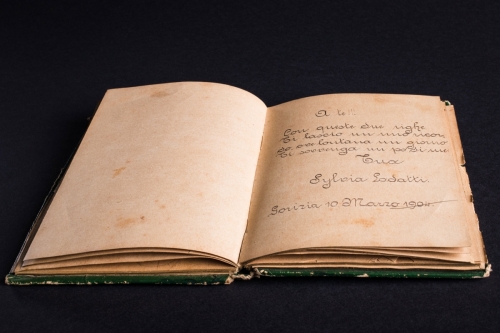 A te!!
Con queste due righe
Ti lascio un mio ricor
lontana un giorno
Ti sovvenga un po di me
Tua
Sylvia
Gorizia 10 Marzo 1904